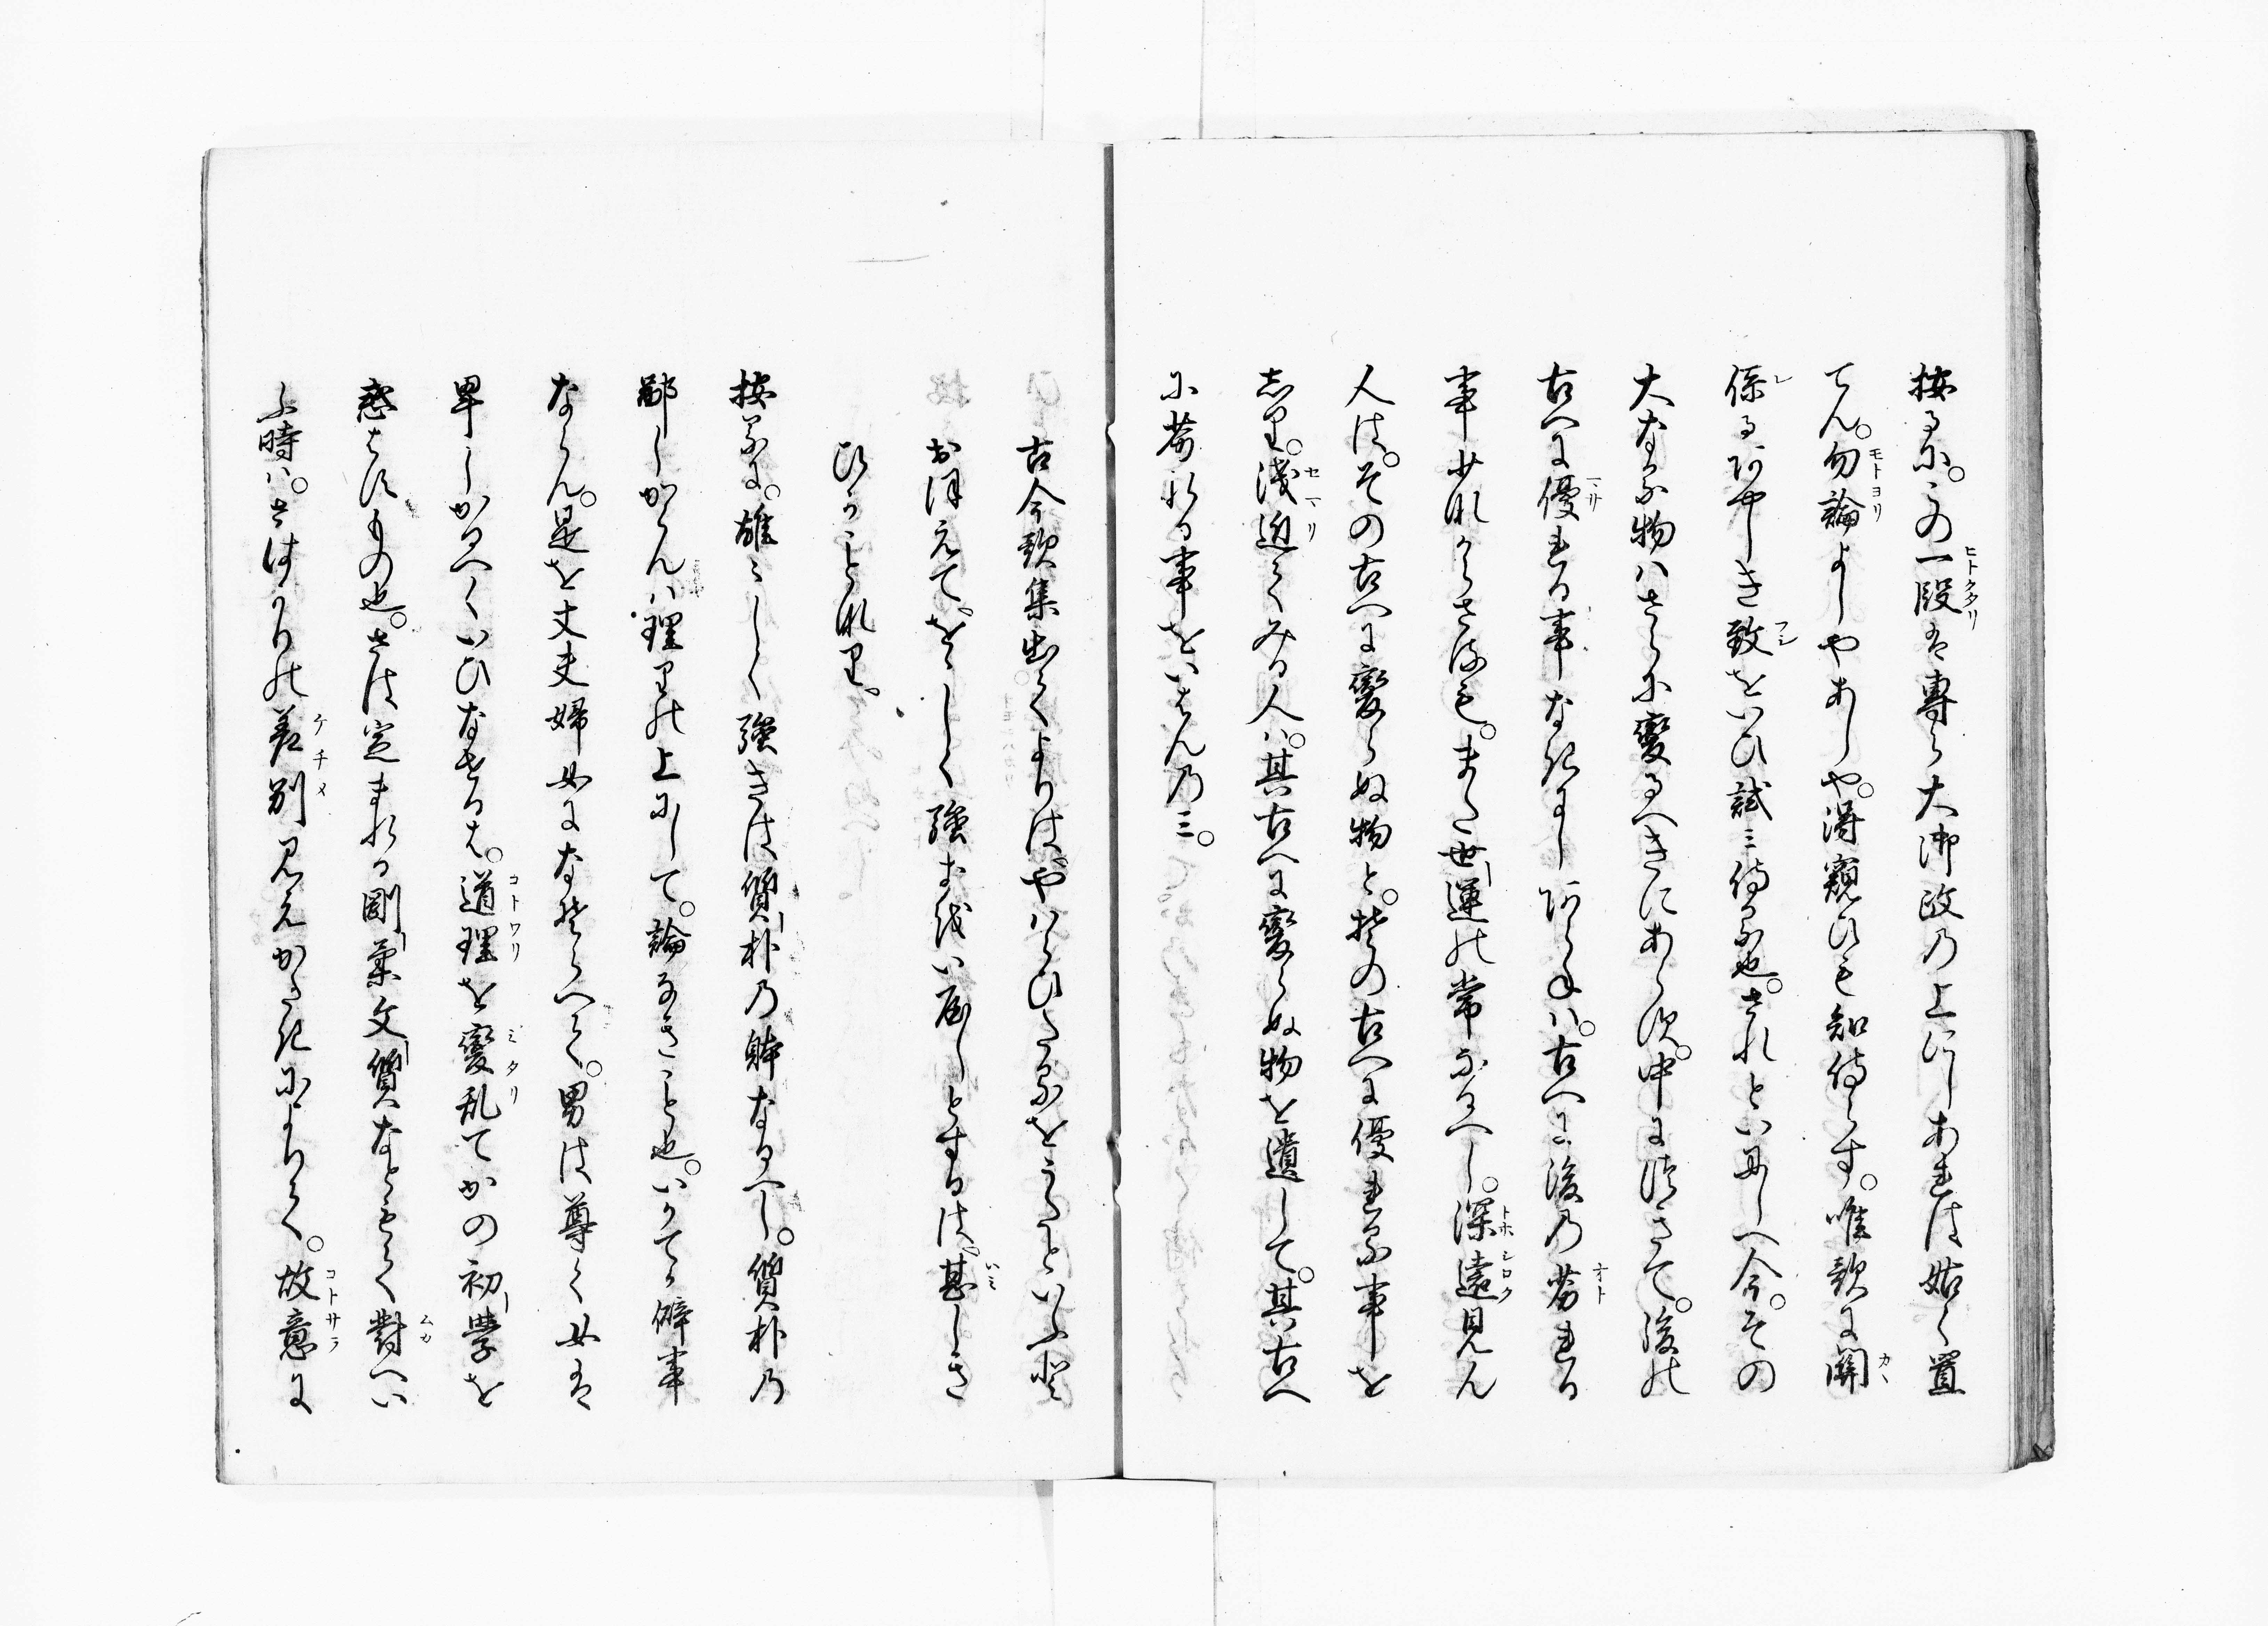 按るに。この一段は專ら大御政の上にしあれは姑く置
てん。勿論よしやあしや。得窺ひも知侍らす。唯歌に關
係るあやしき致をいひ試ミ侍る也。されといにしへ今。その
大なる物ハさらに變るへきにあらす。中に付きて。後の
古へに優れる事なきにしあらねハ。古へに後の劣れる
事少なからさるも。またく世運の常なるへし。深遠見ん
人は。その古へに變らぬ物と。その古へに優れる事を
志り。淺近くみる人ハ。其古へに變らぬ物を遺して。其古へ
に劣れる事をいはんのミ。
古今歌集出てよりは。やハらひたるをうたといふと
おほえて。をゝしく強きをいやしとするは。甚しき
ひかことなり。
按るに。雄々しく強きは質朴の躰なるへし。質朴の
鄙しからんハ理りの上にして。論なきこと也。いかてか僻事
ならん。是を丈夫婦女になそらへて。男は尊く女は
卑しかるへくいひなせるは。道理を變乱てかの初學を
惑はすもの也。さは定まれる剛柔文質なともて對へい
ふ時ハ。さはかりの差別見えかたきによりて。故意に